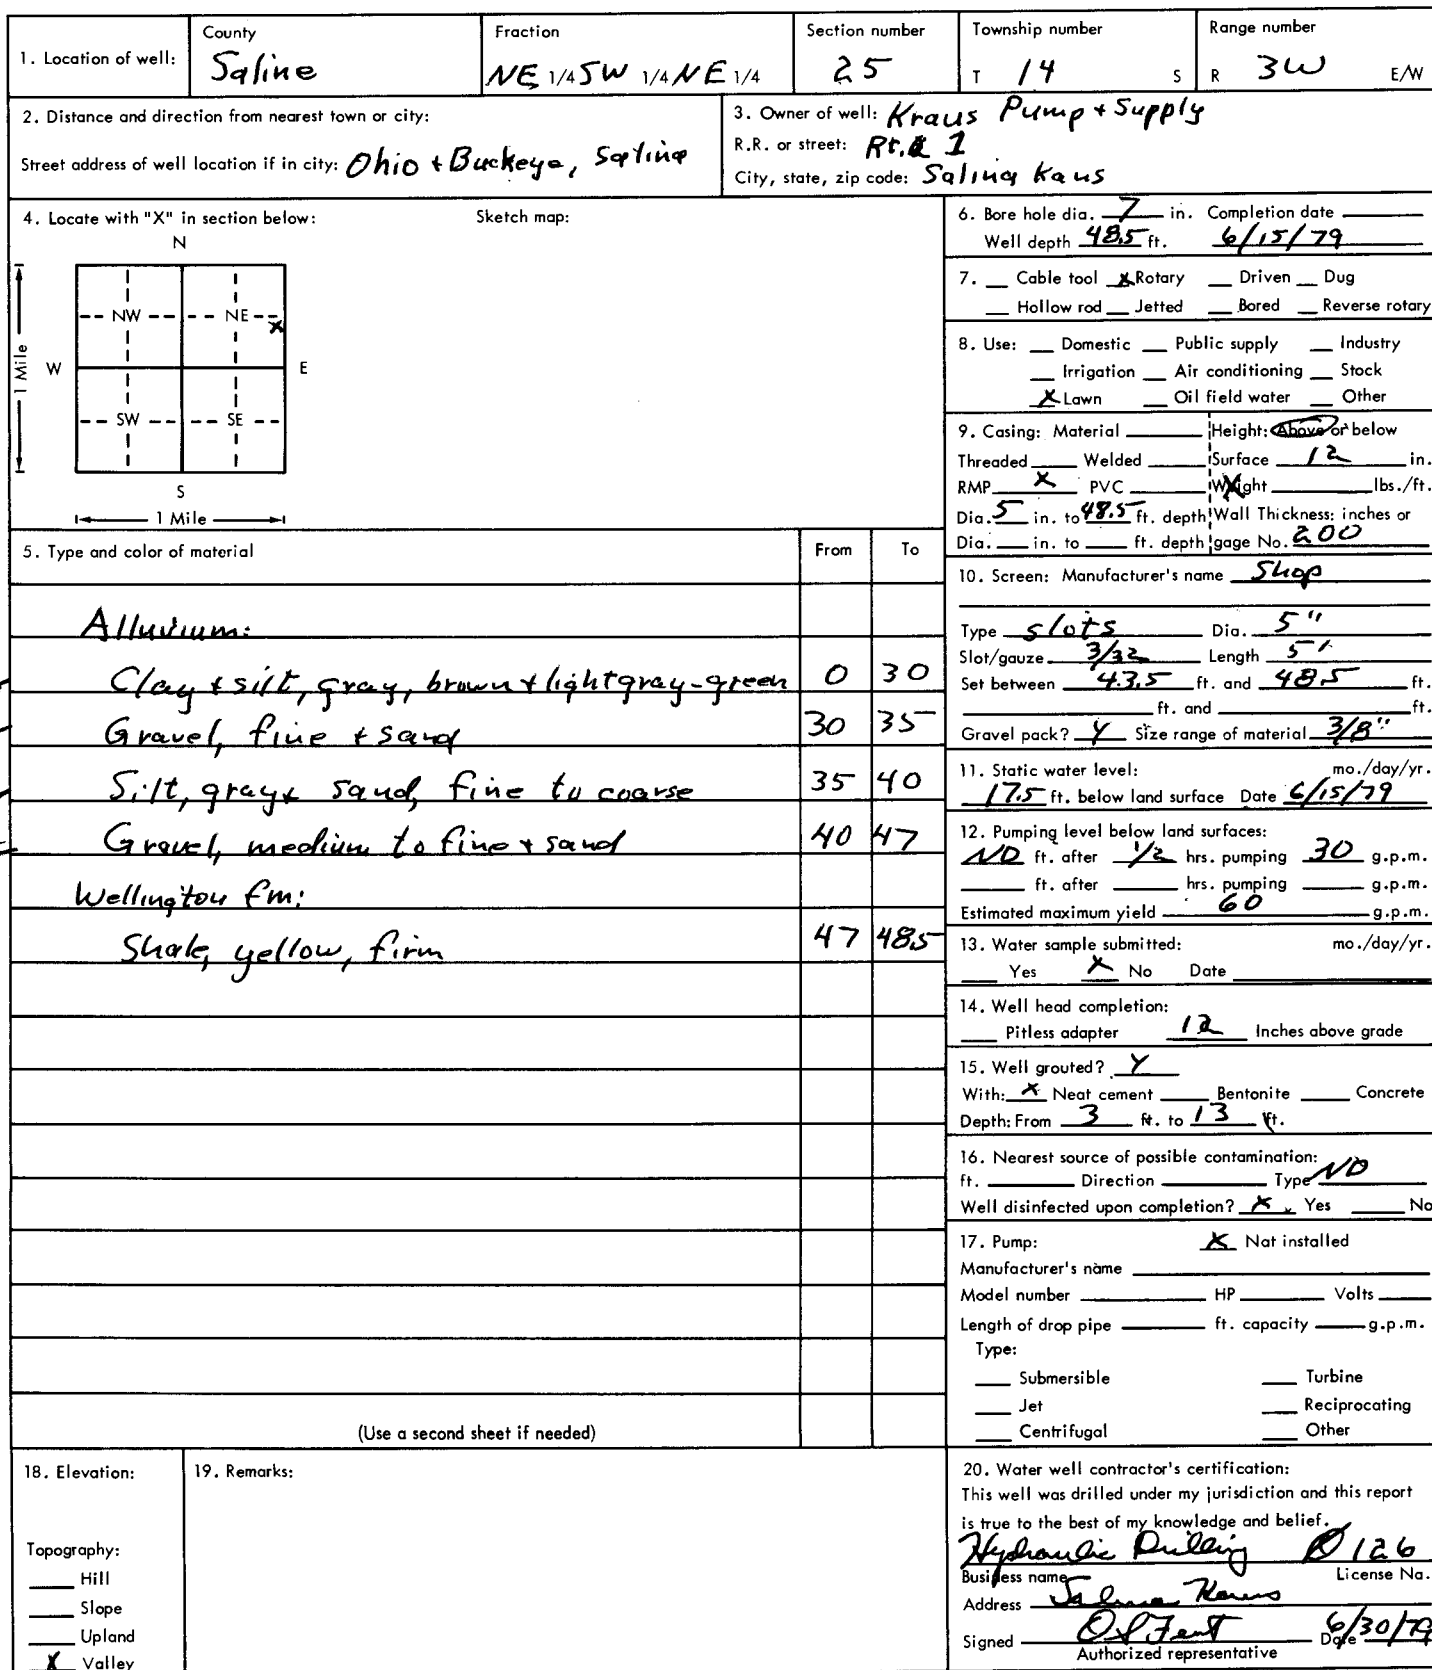 County Fraction Section number Township number Range number
1. Location of well: Saline NE 1/4 SW 1/4 NE 1/4 25 T 14 S R 3W E/W
2. Distance and direction from nearest town or city:
Street address of well location if in city: Ohio + Buckeye, Salina
3. Owner of well: Kraus Pump + Supply
R.R. or street: Rt. 1
City, state, zip code: Salina Kans
4. Locate with "X" in section below: Sketch map:
N
NW NE
X
W E
1 Mile
SW SE
S
1 Mile
5. Type and color of material From To
Alluvium:
Clay & silt, gray, brown & light gray-green 0 30
Gravel, fine & sand 30 35
Silt, gray & sand, fine to coarse 35 40
Gravel, medium to fine & sand 40 47
Wellington fm:
Shale, yellow, firm 47 48.5
(Use a second sheet if needed)
6. Bore hole dia. 7 in. Completion date
Well depth 48.5 ft. 6/15/79
7. Cable tool X Rotary Driven Dug
Hollow rod Jetted Bored Reverse rotary
8. Use: Domestic Public supply Industry
Irrigation Air conditioning Stock
X Lawn Oil field water Other
9. Casing: Material Height: Above or below
Threaded Welded Surface 12 in.
RMP X PVC Weight lbs./ft.
Dia. 5 in. to 48.5 ft. depth Wall Thickness: inches or
Dia. in. to ft. depth gage No. 200
10. Screen: Manufacturer's name Shop
Type slots Dia. 5"
Slot/gauze 3/32 Length 5'
Set between 43.5 ft. and 48.5 ft.
ft. and ft.
Gravel pack? Y Size range of material 3/8"
11. Static water level: mo./day/yr.
17.5 ft. below land surface Date 6/15/79
12. Pumping level below land surfaces:
ND ft. after 1/2 hrs. pumping 30 g.p.m.
ft. after hrs. pumping g.p.m.
Estimated maximum yield 60 g.p.m.
13. Water sample submitted: mo./day/yr.
Yes X No Date
14. Well head completion:
Pitless adapter 12 Inches above grade
15. Well grouted? Y
With: X Neat cement Bentonite Concrete
Depth: From 3 ft. to 13 ft.
16. Nearest source of possible contamination:
ft. Direction Type ND
Well disinfected upon completion? X Yes No
17. Pump: X Not installed
Manufacturer's name
Model number HP Volts
Length of drop pipe ft. capacity g.p.m.
Type:
Submersible Turbine
Jet Reciprocating
Centrifugal Other
18. Elevation:
Topography:
Hill
Slope
Upland
X Valley
19. Remarks:
20. Water well contractor's certification:
This well was drilled under my jurisdiction and this report
is true to the best of my knowledge and belief.
Hydraulic Drilling 126
Business name License No.
Address Salina Kans
Signed O S Fent Date 6/30/79
Authorized representative